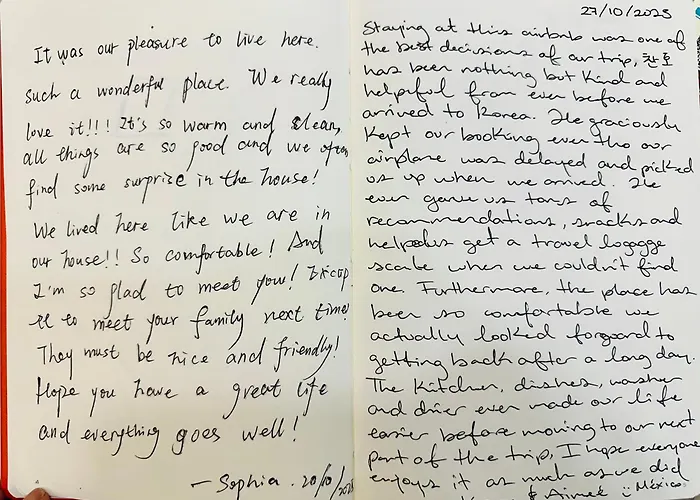 It was our pleasure to live here.
such a wonderful place. We really
love it!!! It's so warm and clean,
all things are so good and we often
find some surprise in the house!
We lived here like we are in
our house!! So comfortable! And
I'm so glad to meet you!
to meet your family next time!
They must be nice and friendly!
Hope you have a great life
and everything goes well!
— Sophia. 20/10/2025
27/10/2025
Staying at this airbnb was one of
the best decisions of our trip, 찬호
has been nothing but kind and
helpful from even before we
arrived to Korea. He graciously
kept our booking even tho our
airplane was delayed and picked
us up when we arrived. He
even gave us tons of
recommendations, snacks and
helped us get a travel loggage
scale when we couldn't find
one. Furthermore, the place has
been so comfortable we
actually looked forgoard to
getting back after a long day.
The kitchen, dishes, washer
and drier even made our life
easier before moving to our next
part of the trip, I hope everyone
enjoys it as much as we did
& Aimeé :: México